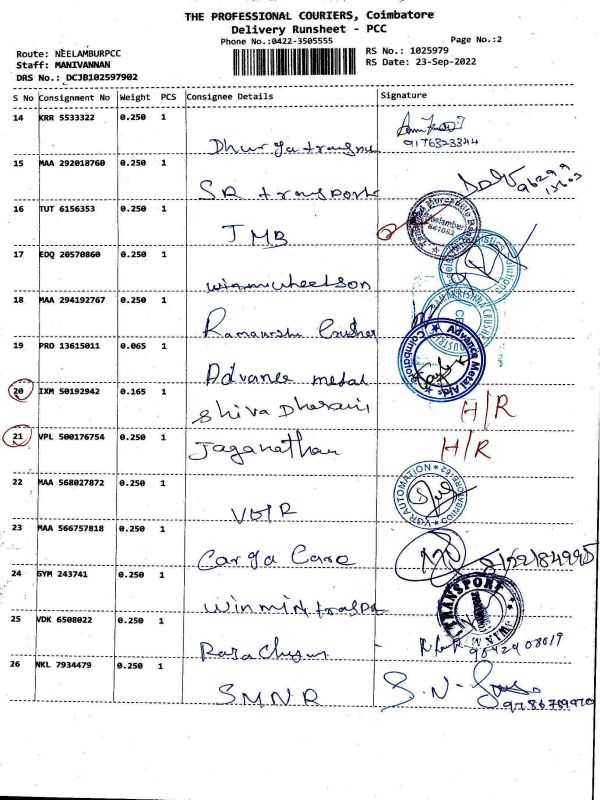 THE PROFESSIONAL COURIERS, Coimbatore
Delivery Runsheet - PCC
Phone No.:0422-3505555
Page No.:2
Route: NEELAMBURPCC
Staff: MANIVANNAN
DRS No.: DCJB102597902
RS No.: 1025979
RS Date: 23-Sep-2022
S No Consignment No Weight PCS Consignee Details Signature
14 KRR 5533322 0.250 1
Dhurga
9176323344
15 MAA 292018760 0.250 1
SR transports
16 TUT 6156353 0.250 1
JMB
Neelambur
641062
17 EDQ 20570860 0.250 1
winmwheelson
18 MAA 294192767 0.250 1
Crusher
19 PRO 13615011 0.065 1
Advance metal
Advance Metal Aids
Coimbatore
20 IXM 50192942 0.165 1
Shiva Dharani H/R
21 VPL 500176754 0.250 1
Jaganathan H/R
22 MAA 568027872 0.250 1
VGTR
AUTOMATION
COIMBATORE-62
23 MAA 566757818 0.250 1
Carga Care
24 GYM 243741 0.250 1
TRANSPORT
25 VDK 6508022 0.250 1
9042408019
26 NKL 7934479 0.250 1
SMNR
S.N.